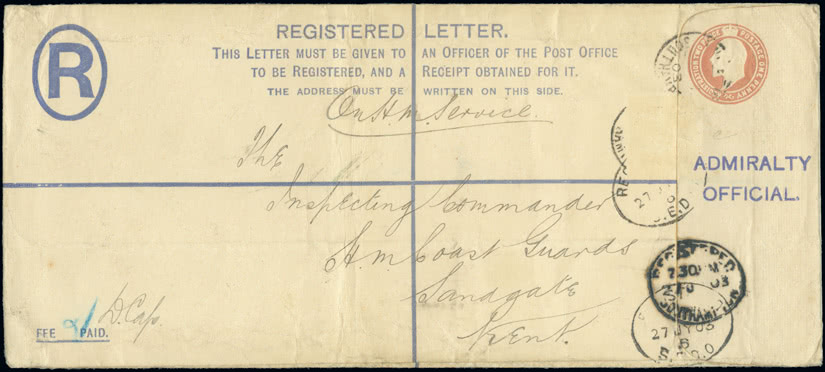 REGISTERED LETTER.
THIS LETTER MUST BE GIVEN TO AN OFFICER OF THE POST OFFICE
TO BE REGISTERED, AND A RECEIPT OBTAINED FOR IT.
THE ADDRESS MUST BE WRITTEN ON THIS SIDE.
R
On H.M. Service.
The
Inspecting Commander
H.M. Coast Guards
Sandgate
Kent.
ADMIRALTY
OFFICIAL.
POSTAGE ONE PENNY
REGISTRATION TWO PENCE
27
REGISTERED
7.30PM
03
SOUTHAMPTON
27 JY 03
FEE PAID.